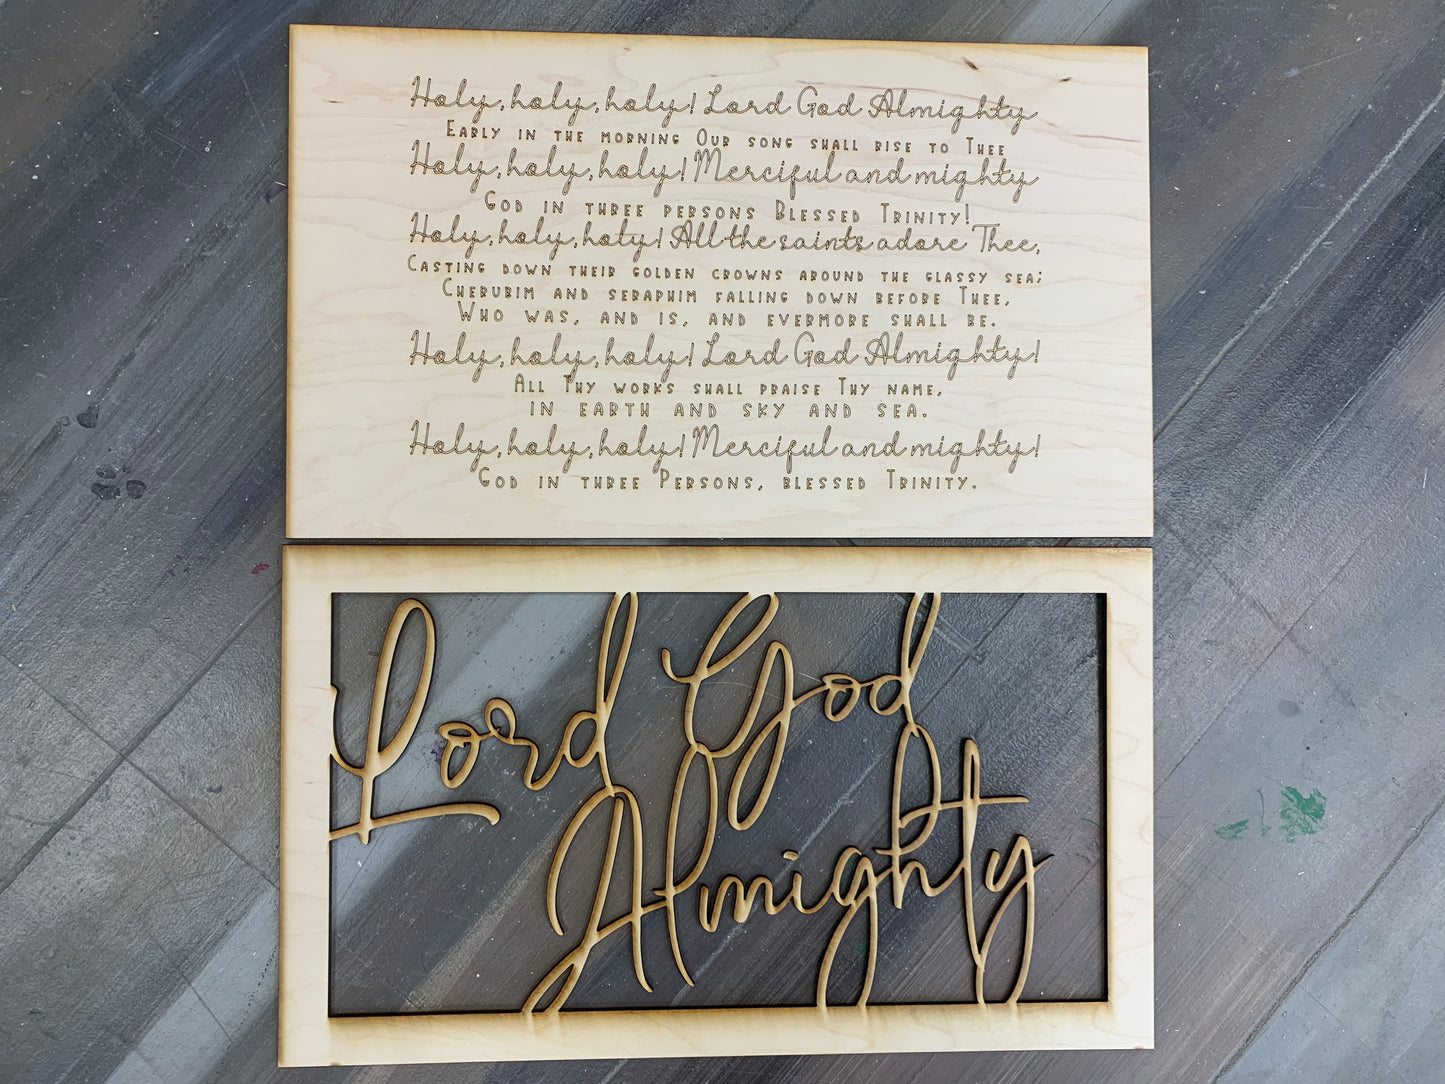 Holy, holy, holy! Lord God Almighty
Early in the morning Our song shall rise to Thee
Holy, holy, holy! Merciful and mighty
God in three persons Blessed Trinity!
Holy, holy, holy! All the saints adore Thee,
Casting down their golden crowns around the glassy sea;
Cherubim and seraphim falling down before Thee,
Who was, and is, and evermore shall be.
Holy, holy, holy! Lord God Almighty!
All Thy works shall praise Thy name,
in earth and sky and sea.
Holy, holy, holy! Merciful and mighty!
God in three Persons, blessed Trinity.
Lord God
Almighty